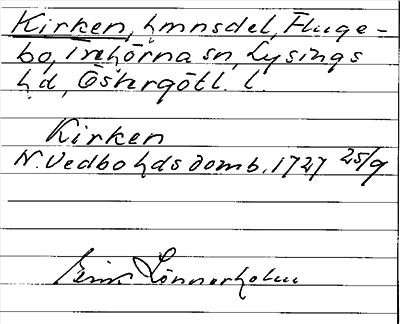 Kirken, hmnsdel, Fluge-
bo, Trehörna sn, Lysings
hd, Östergötl. l.
Kirken
N. Vedbo hds domb. 1727 25/9
Erik Lönnerholm